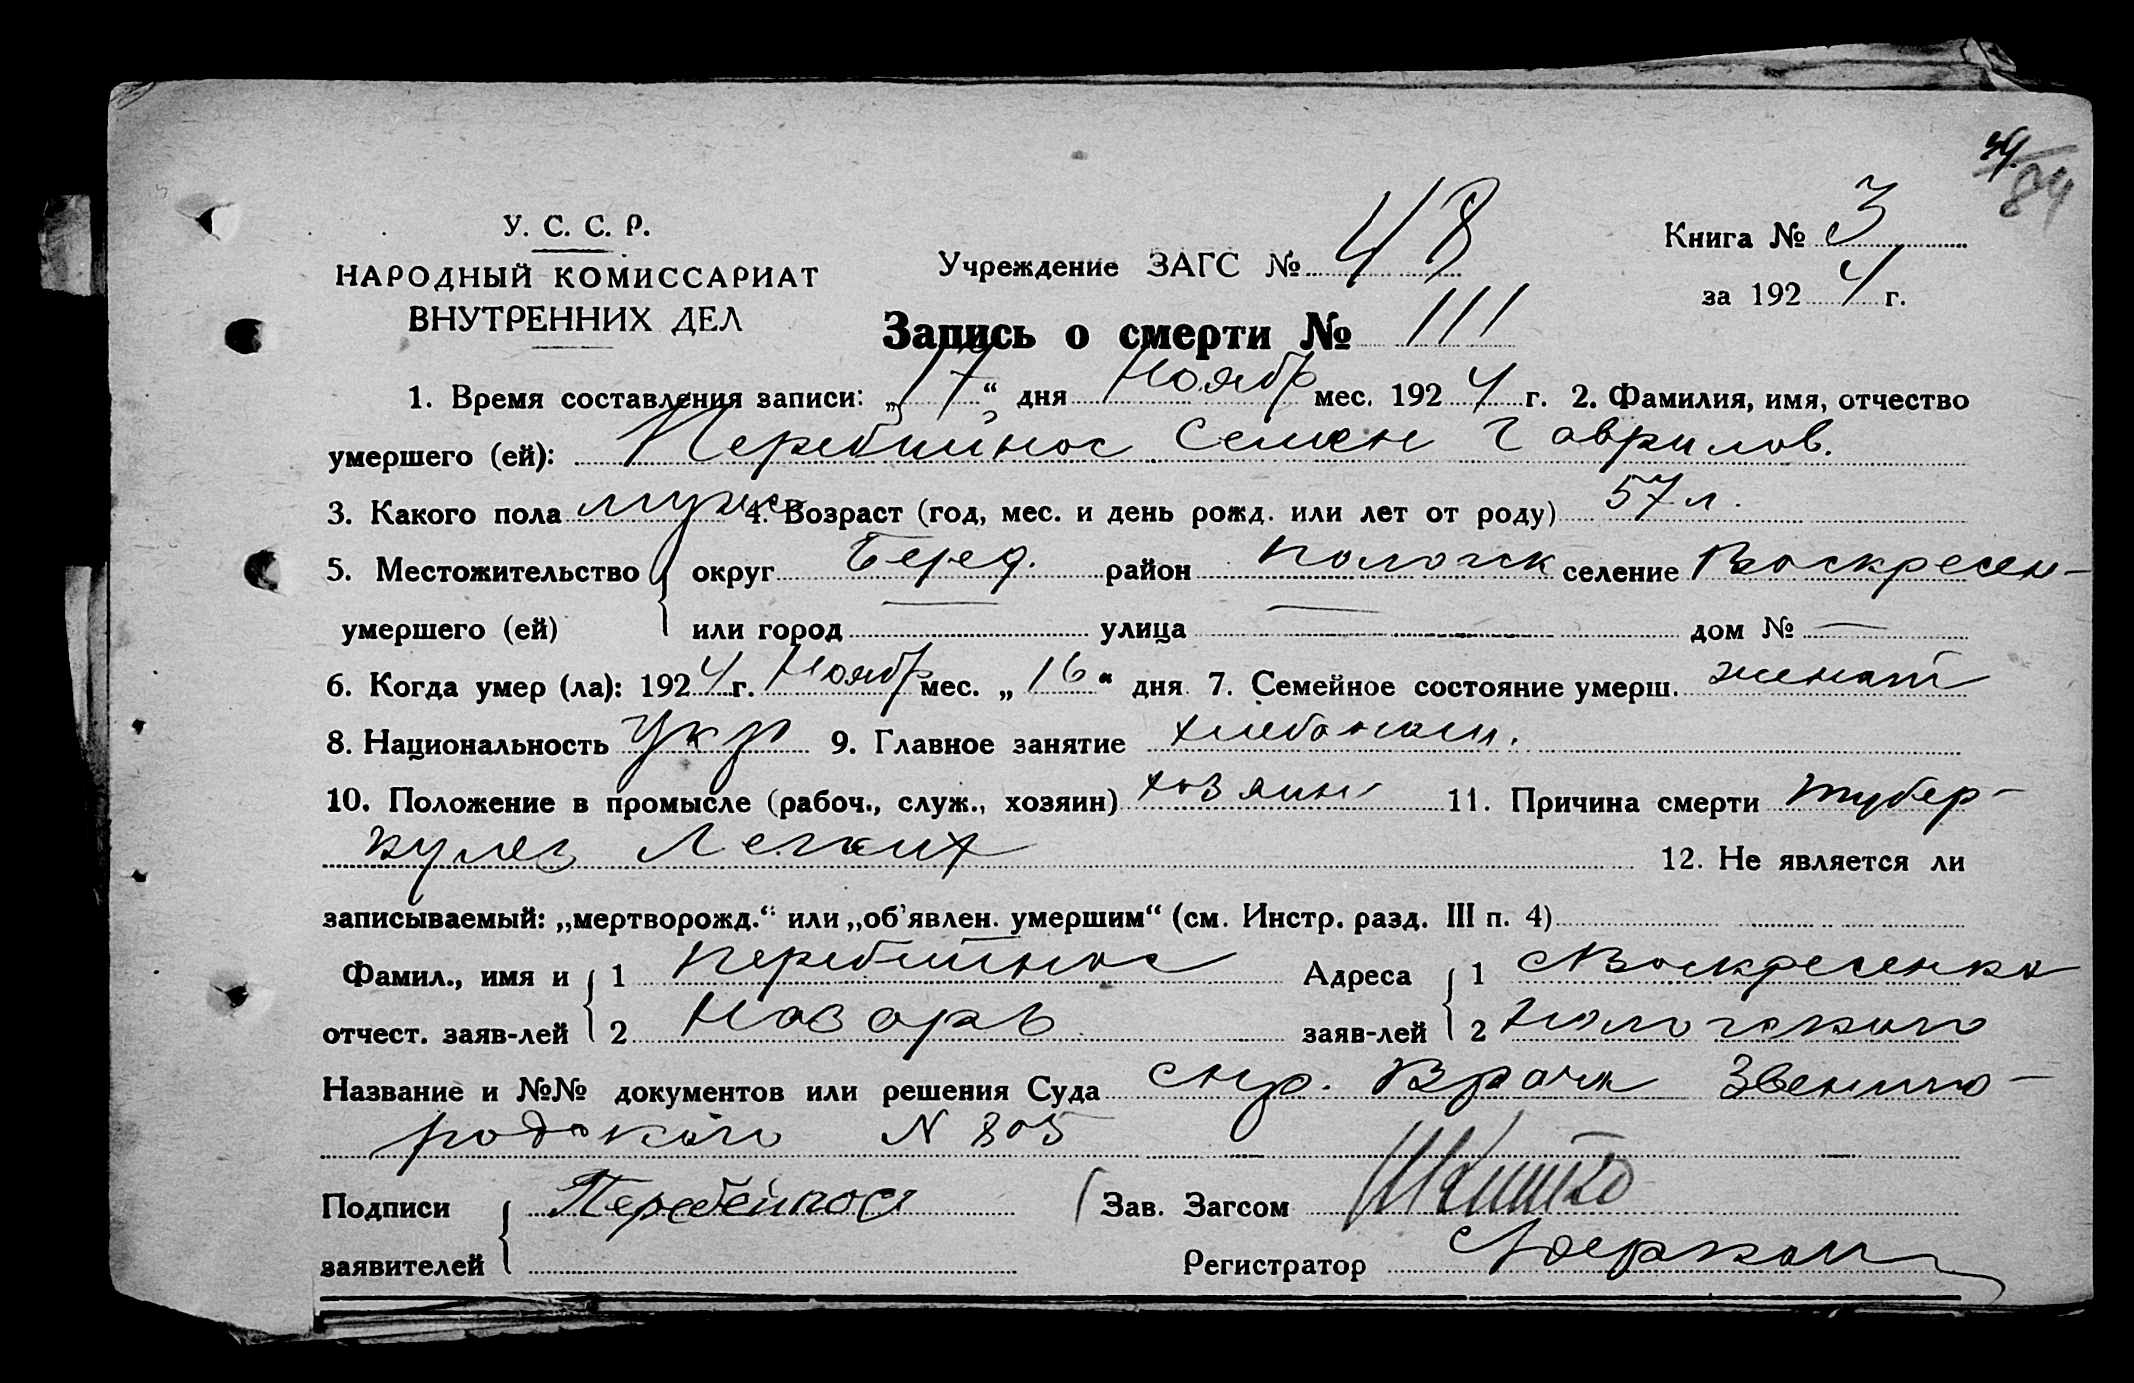 39/84
У. С. С. Р.
НАРОДНЫЙ КОМИССАРИАТ
ВНУТРЕННИХ ДЕЛ
Учреждение ЗАГС № 48
Книга № 3
за 1924 г.
Запись о смерти № 111
1. Время составления записи: „17“ дня Ноябр мес. 1924 г. 2. Фамилия, имя, отчество
умершего (ей): Перебийнос Семен Гаврилов.
3. Какого пола муж 4. Возраст (год, мес. и день рожд. или лет от роду) 57 л.
5. Местожительство округ Беред. район Пологск селение Воскресен-
умершего (ей) или город — улица — дом № —
6. Когда умер (ла): 1924 г. Ноябр мес. „16“ дня 7. Семейное состояние умерш. женат
8. Национальность Укр 9. Главное занятие хлебопаш.
10. Положение в промысле (рабоч., служ., хозяин) хозяин 11. Причина смерти тубер-
кулез Легких 12. Не является ли
записываемый: „мертворожд.“ или „об'явлен. умершим“ (см. Инстр. разд. III п. 4)
Фамил., имя и 1 Перебийнос Адреса 1 Воскресенка
отчест. заяв-лей 2 заяв-лей 2 Пологского
Название и №№ документов или решения Суда спр. Врача Звениго-
родского N 805
Подписи Перебейнос Зав. Загсом
заявителей Регистратор